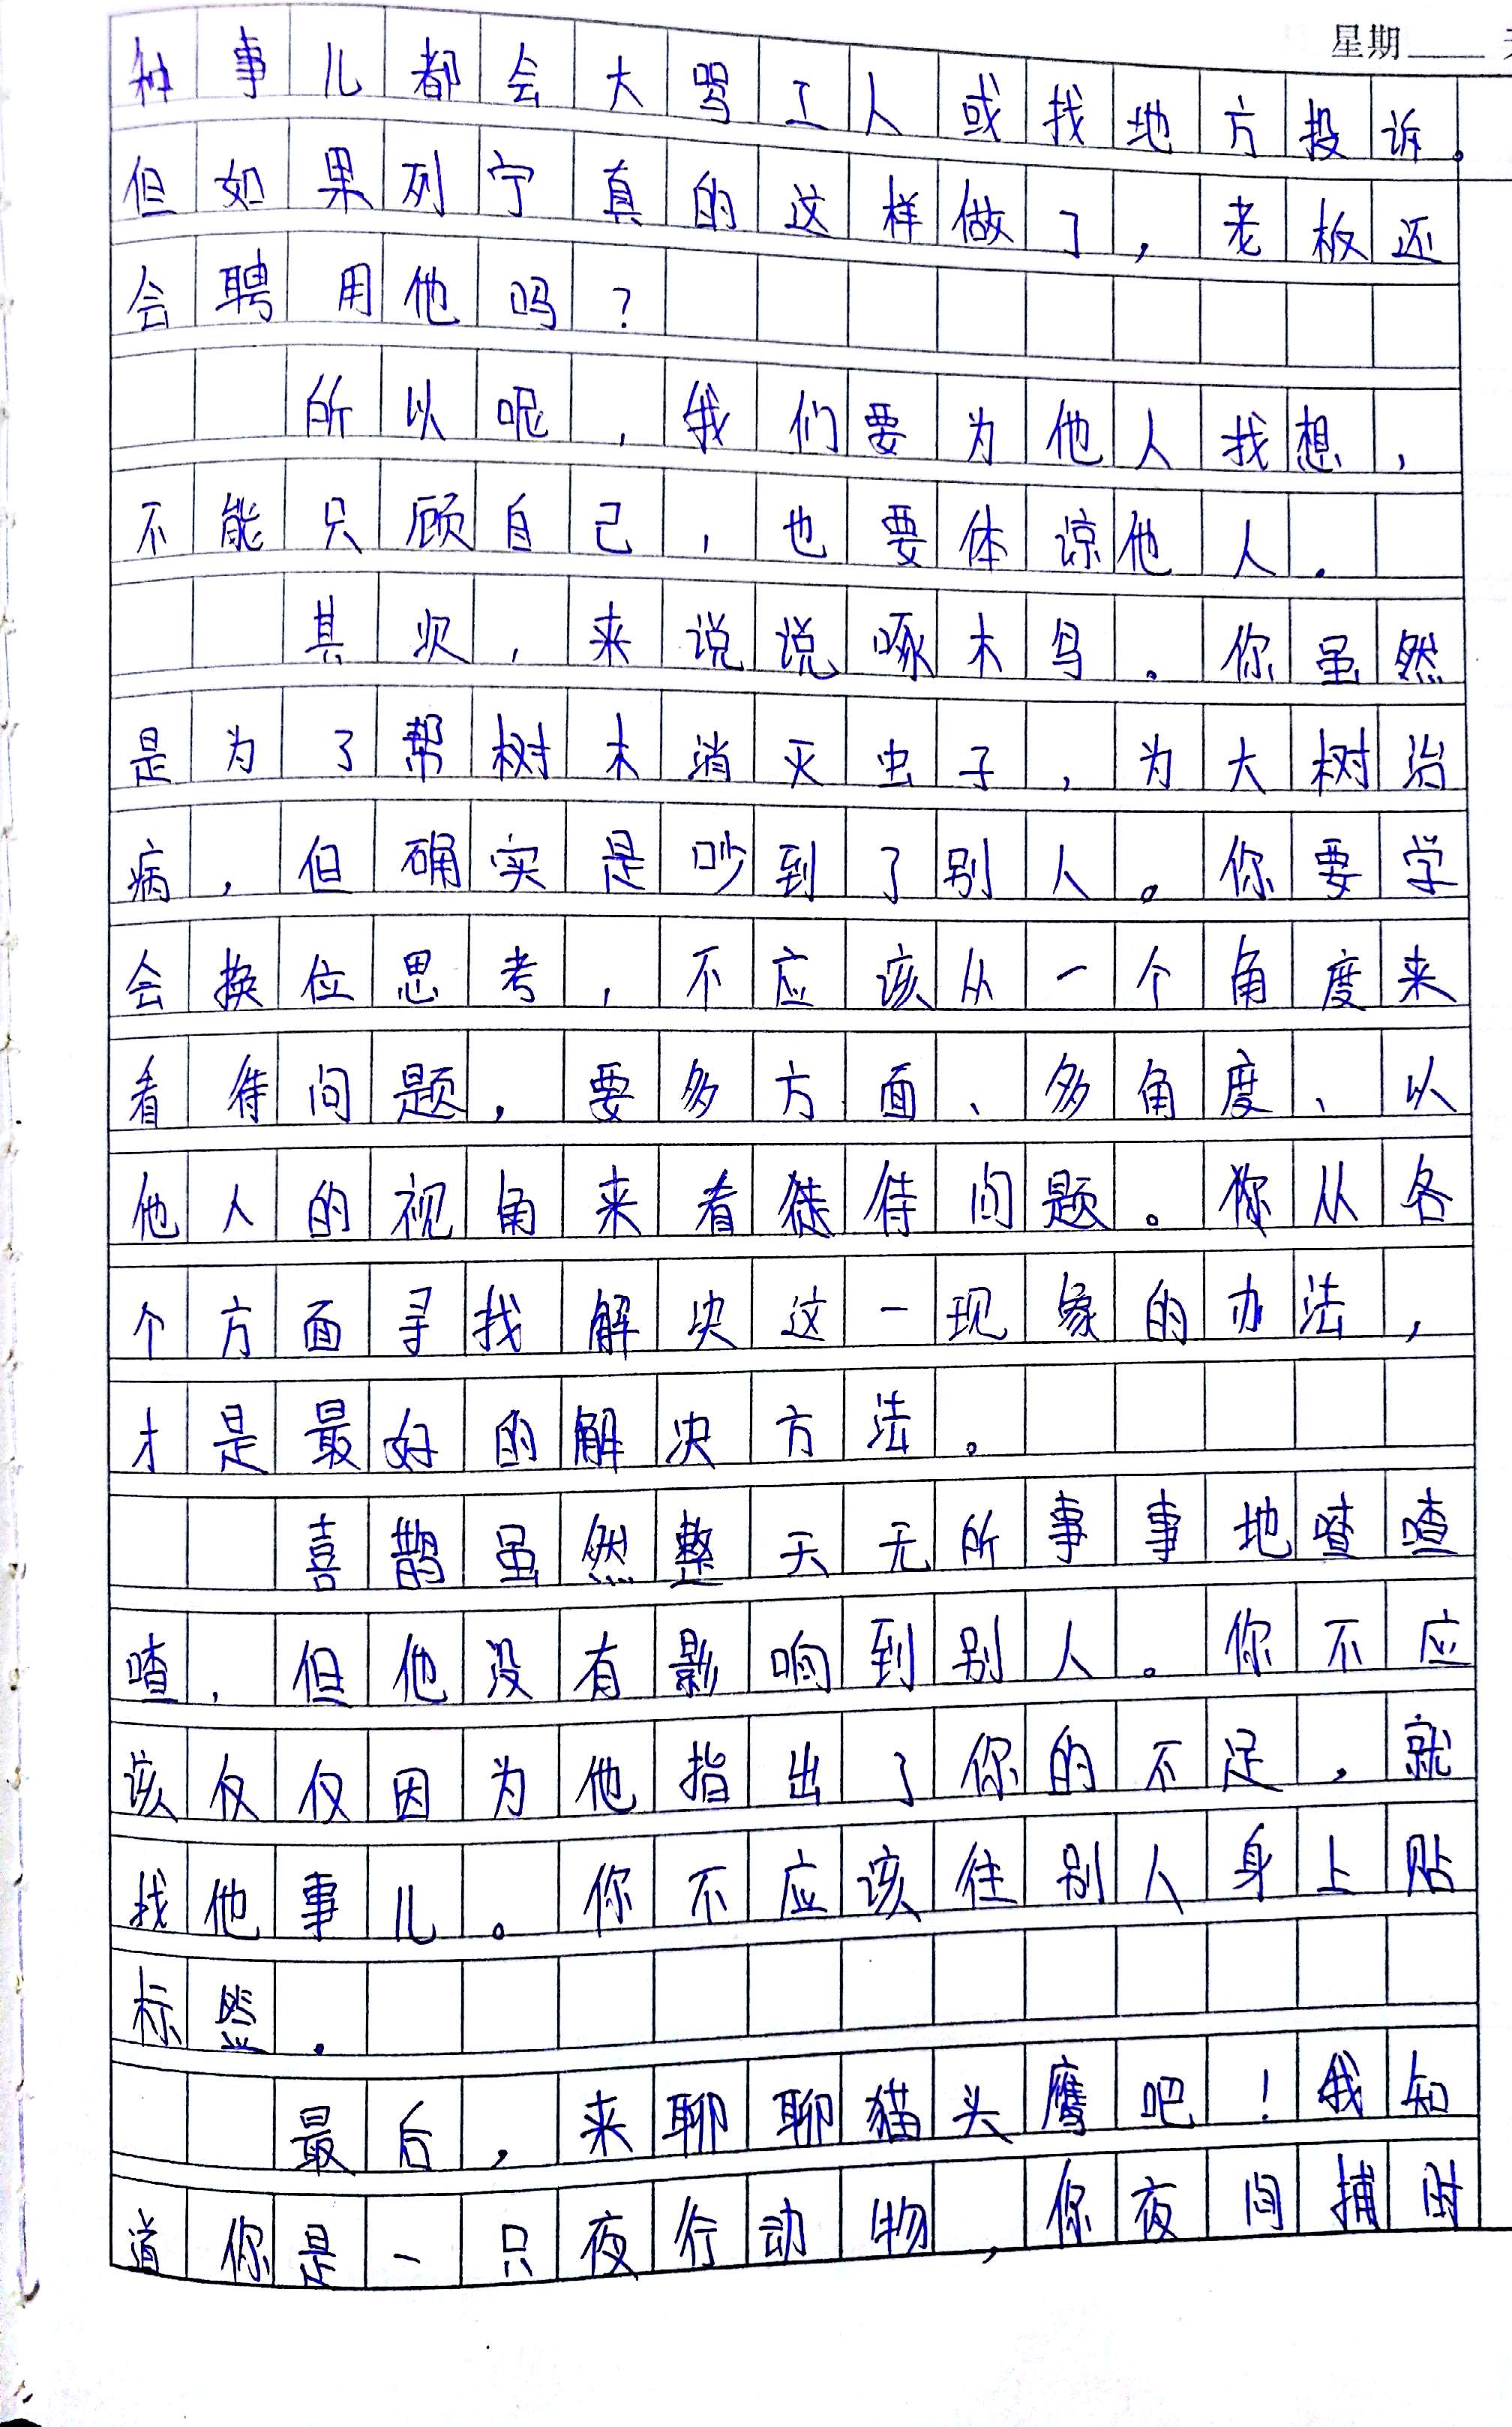 星期
种事儿都会大骂工人或找地方投诉。
但如果列宁真的这样做了，老板还
会聘用他吗？
所以呢，我们要为他人找想，
不能只顾自己，也要体谅他人。
其次，来说说啄木鸟。你虽然
是为了帮树木消灭虫子，为大树治
病，但确实是吵到了别人。你要学
会换位思考，不应该从一个角度来
看待问题，要多方面、多角度、以
他人的视角来看待问题。你从各
个方面寻找解决这一现象的办法，
才是最好的解决方法。
喜鹊虽然整天无所事事地喳喳
喳，但他没有影响到别人。你不应
该仅仅因为他指出了你的不足，就
找他事儿。你不应该往别人身上贴
标签。
最后，来聊聊猫头鹰吧！我知
道你是一只夜行动物，你夜间捕时